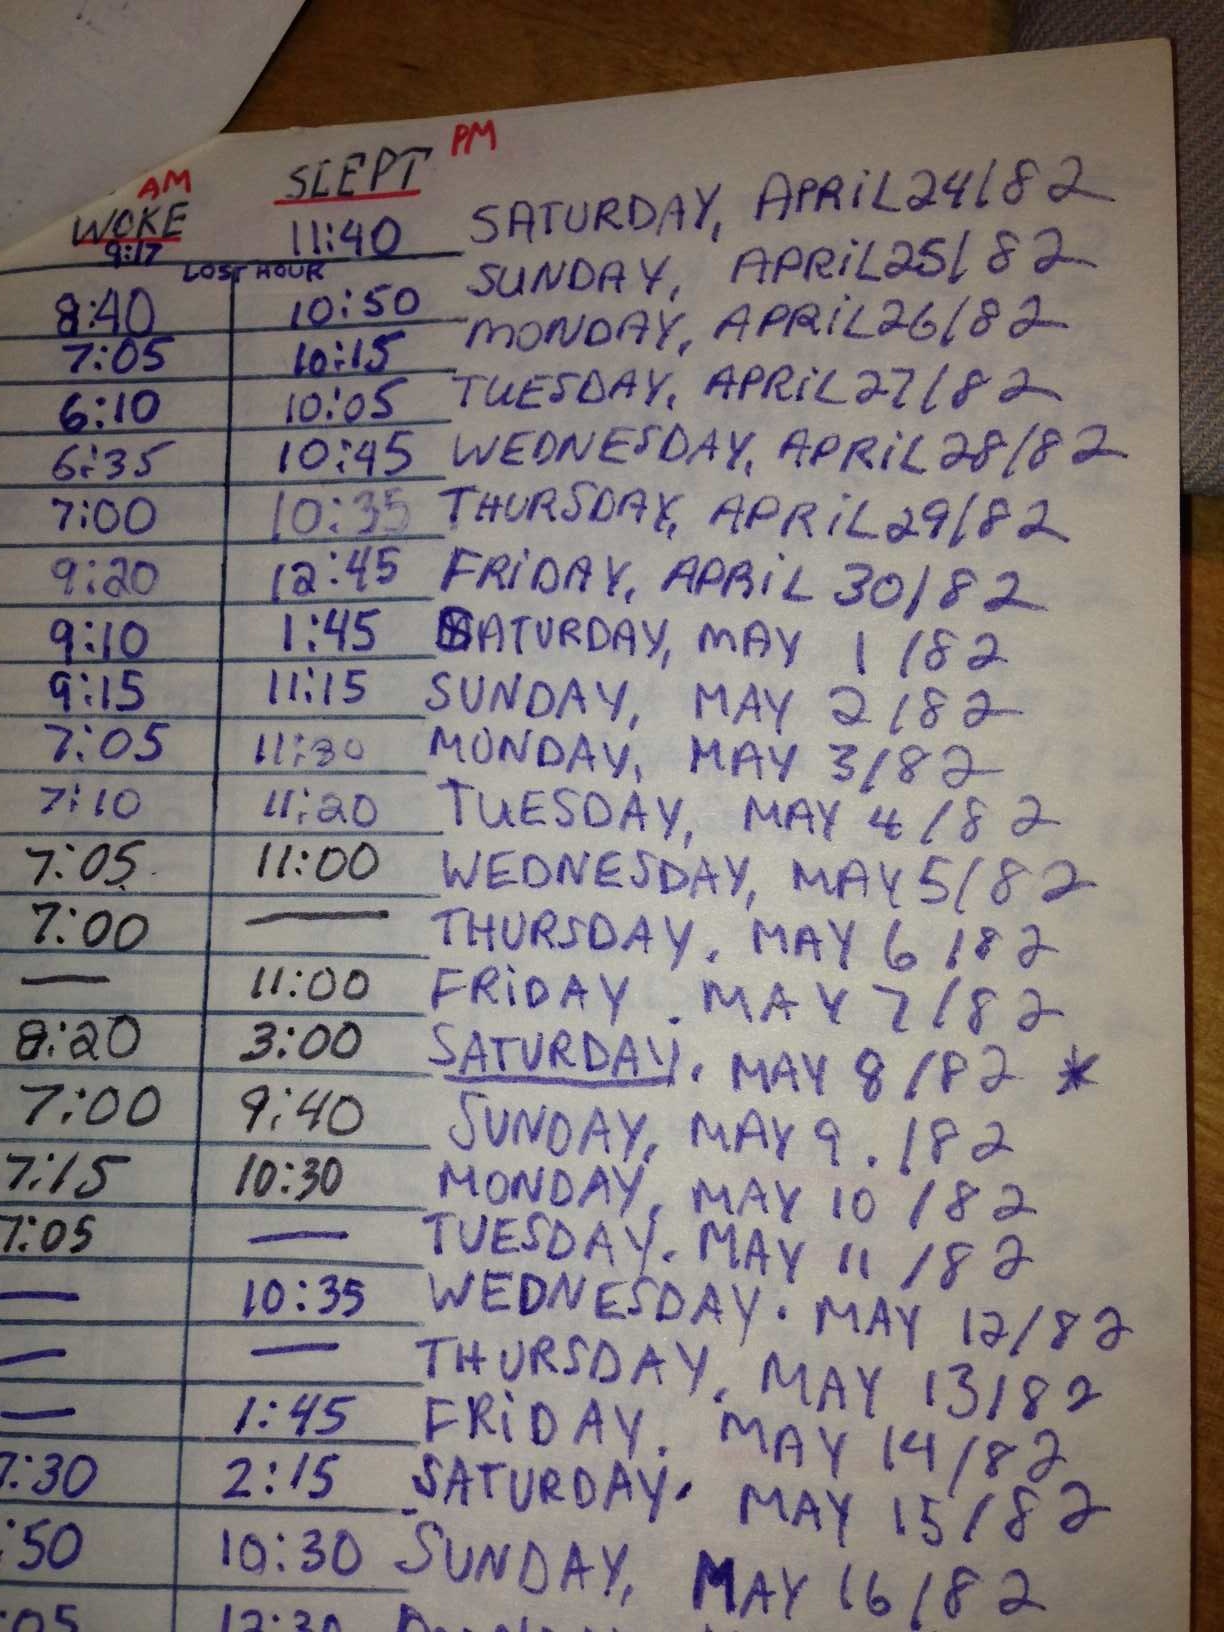 AM SLEPT PM
WOKE
9:17 11:40 SATURDAY, APRiL 24/82
LOST HOUR
8:40 10:50 SUNDAY, APRiL 25/82
7:05 10:15 MONDAY, APRiL 26/82
6:10 10:05 TUESDAY, APRiL 27/82
6:35 10:45 WEDNESDAY, APRiL 28/82
7:00 10:35 THURSDAY, APRiL 29/82
9:20 12:45 FRiDAY, APRiL 30/82
9:10 1:45 SATURDAY, MAY 1/82
9:15 11:15 SUNDAY, MAY 2/82
7:05 11:30 MONDAY, MAY 3/82
7:10 11:20 TUESDAY, MAY 4/82
7:05 11:00 WEDNESDAY, MAY 5/82
7:00 — THURSDAY. MAY 6/82
— 11:00 FRiDAY. MAY 7/82
8:20 3:00 SATURDAY. MAY 8/82 *
7:00 9:40 SUNDAY, MAY 9./82
7:15 10:30 MONDAY, MAY 10/82
7:05 — TUESDAY. MAY 11/82
— 10:35 WEDNESDAY. MAY 12/82
— — THURSDAY. MAY 13/82
— 1:45 FRiDAY. MAY 14/82
7:30 2:15 SATURDAY. MAY 15/82
:50 10:30 SUNDAY, MAY 16/82
:05 12:30